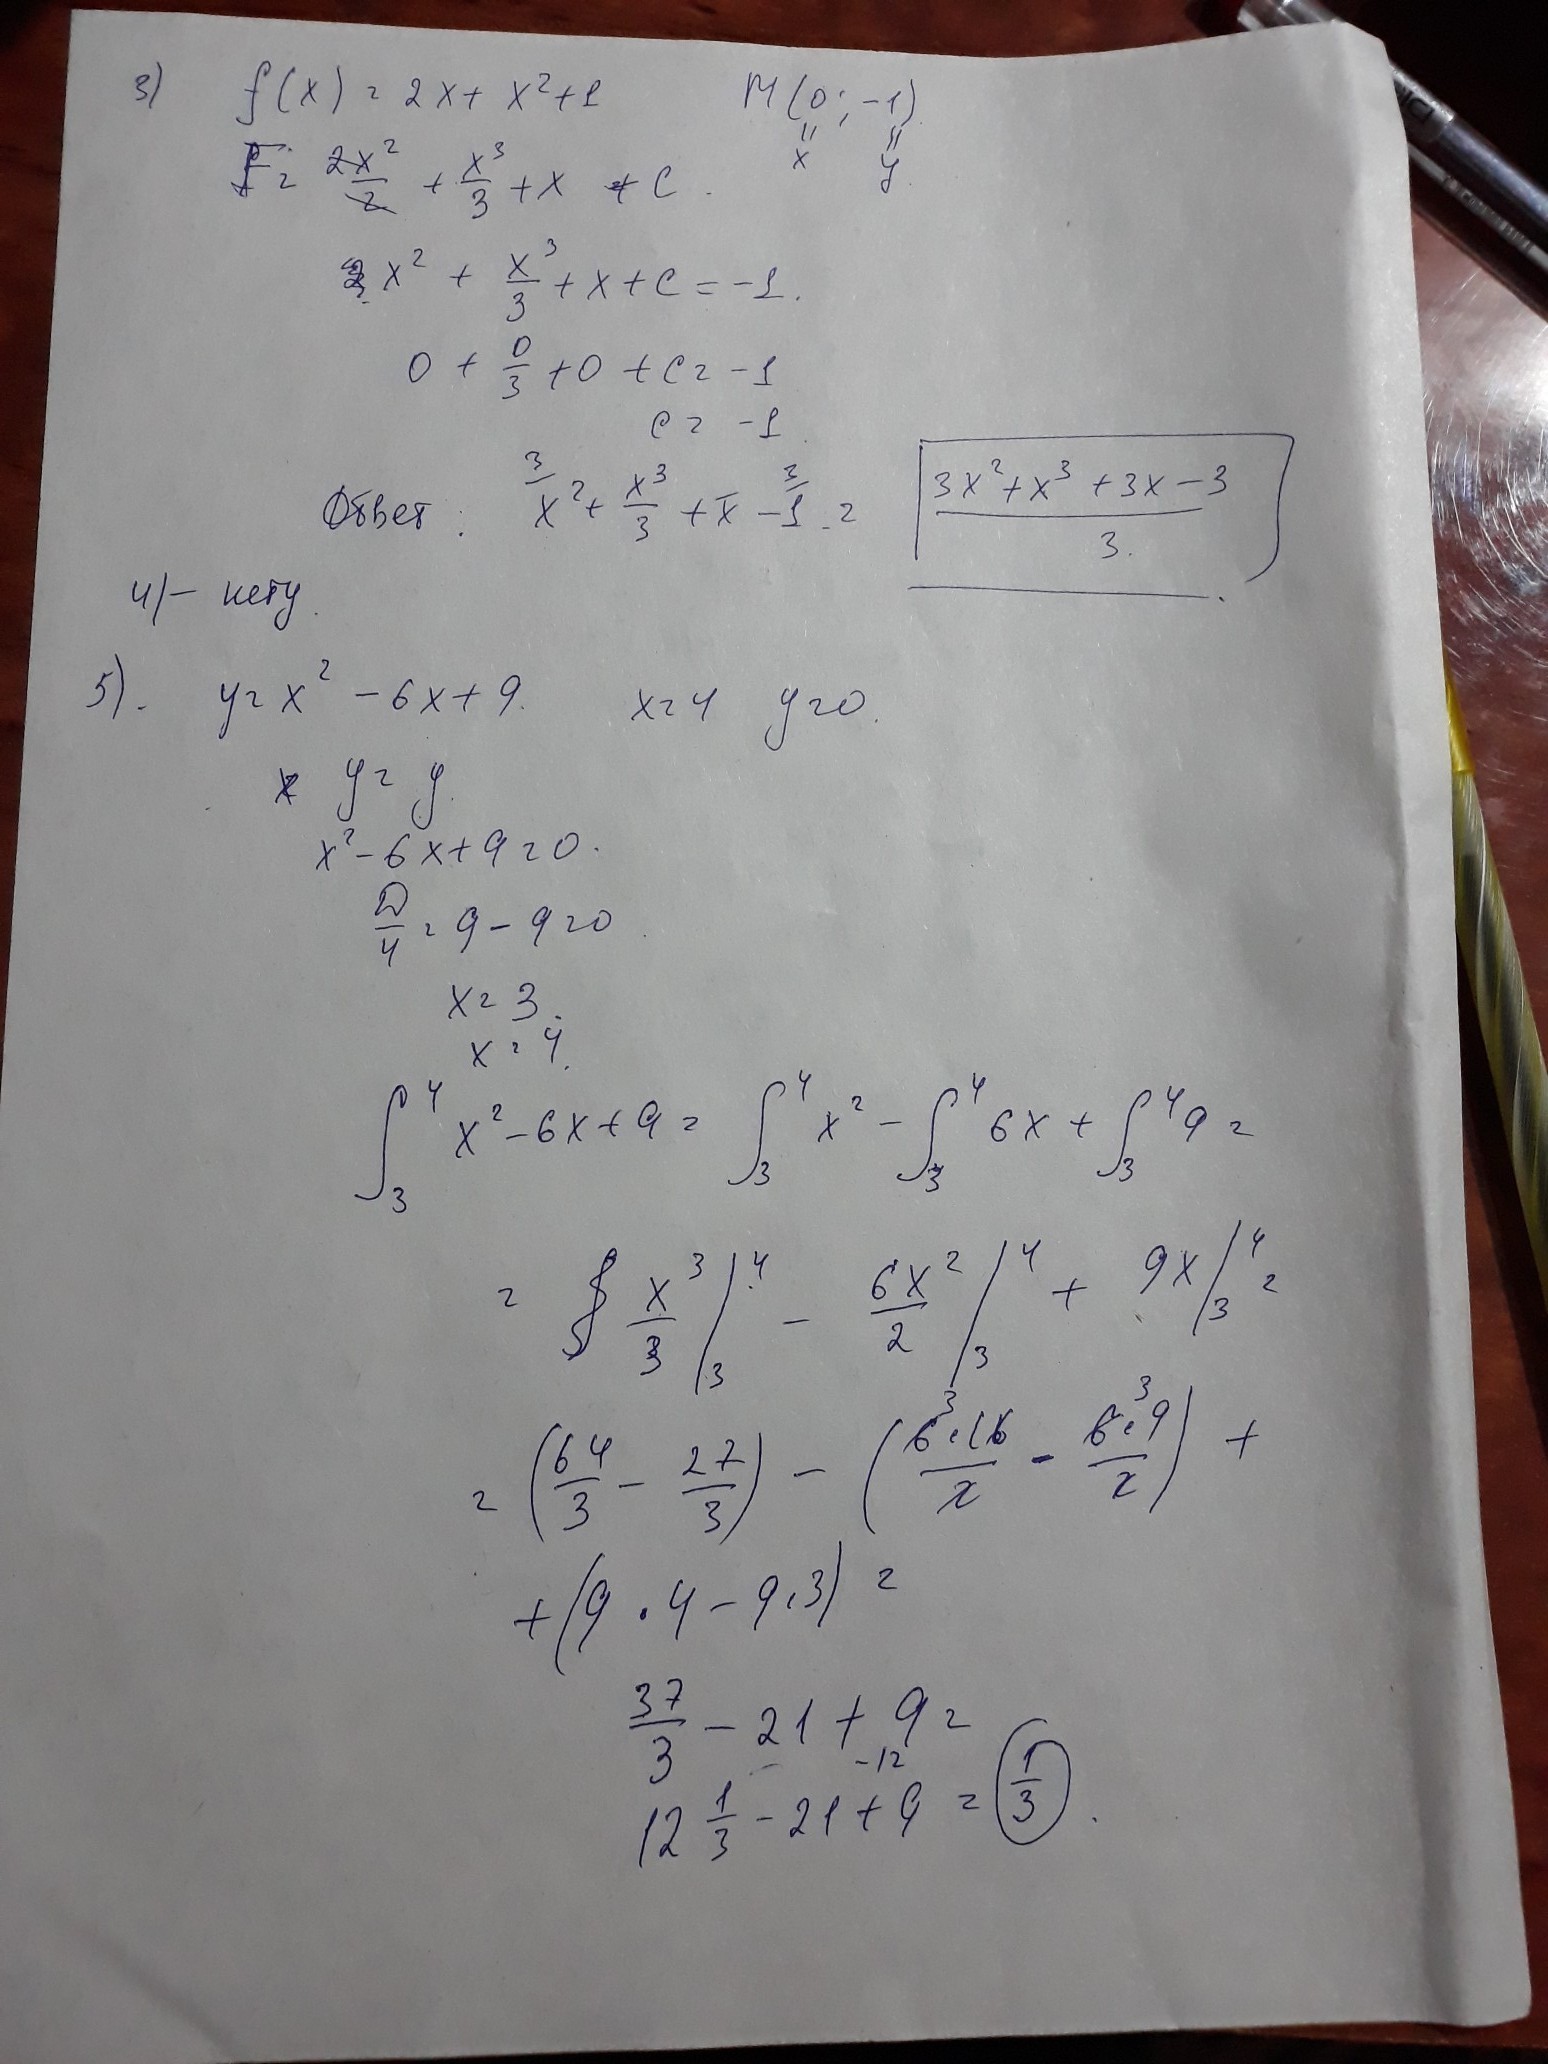 3) f(x) = 2x + x² + 1 M(0; -1)
x y
F = 2x²/2 + x³/3 + x + C.
x² + x³/3 + x + C = -1.
0 + 0/3 + 0 + C = -1
C = -1
Ответ: x² + x³/3 + x - 1 = (3x² + x³ + 3x - 3)/3.
4) - нету.
5). y = x² - 6x + 9. x = 4 y = 0.
y = y.
x² - 6x + 9 = 0.
D/4 = 9 - 9 = 0
x = 3.
x = 4.
∫₃⁴ x² - 6x + 9 = ∫₃⁴ x² - ∫₃⁴ 6x + ∫₃⁴ 9 =
= x³/3 |₃⁴ - 6x²/2 |₃⁴ + 9x |₃⁴ =
= (64/3 - 27/3) - (6·16/2 - 6·9/2) +
+ (9 · 4 - 9·3) =
37/3 - 21 + 9 =
-12
12 1/3 - 21 + 9 = 1/3.